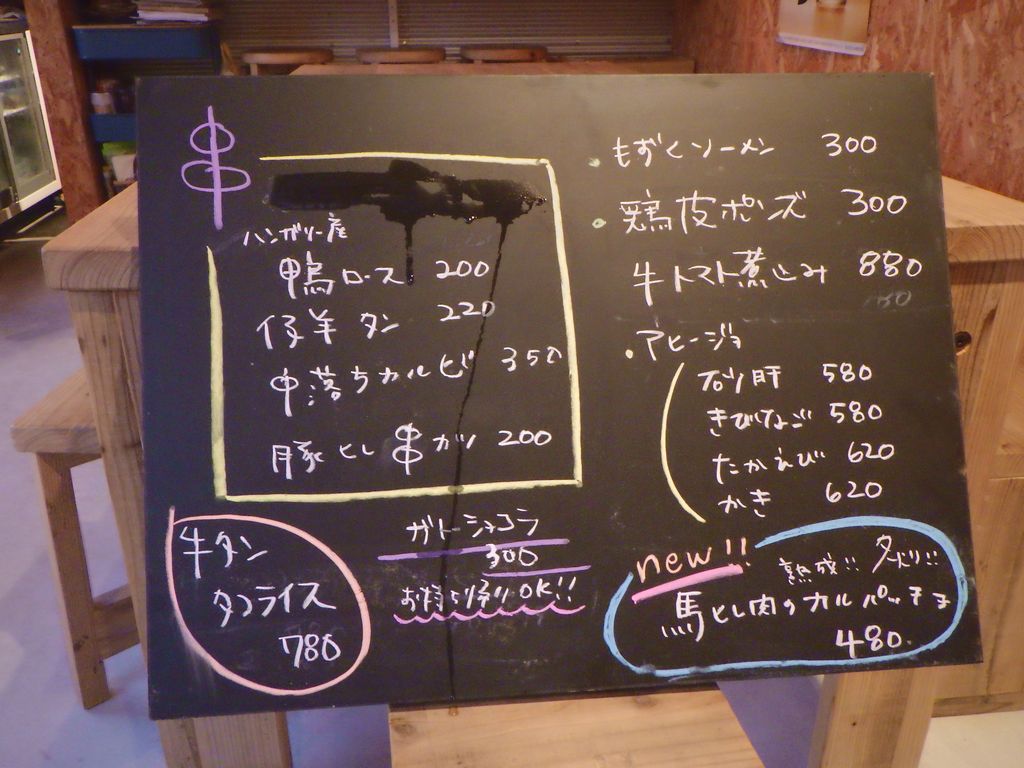 串
ハンガリー産
鴨ロース 200
仔羊タン 220
中落ちカルビ 350
豚ヒレ串カツ 200
牛タン
タコライス
780
ガトーショコラ
300
お持ち帰りOK!!
・もずくソーメン 300
・鶏皮ポンズ 300
牛トマト煮込み 880
・アヒージョ
砂肝 580
きびなご 580
たかえび 620
かき 620
new!!
熟成!!
馬ヒレ肉のカルパッチョ
480.